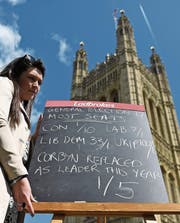 Ladbrokes
GENERAL ELECTION 17
MOST SEATS
CON 1/10 LAB 7/1
LIB DEM 33/1 UKIP
CORBYN REPLACED
AS LEADER THIS YEAR
1/5